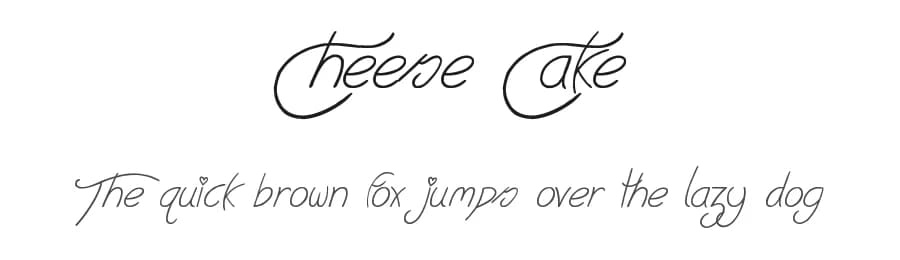 Cheese Cake
The quick brown fox jumps over the lazy dog